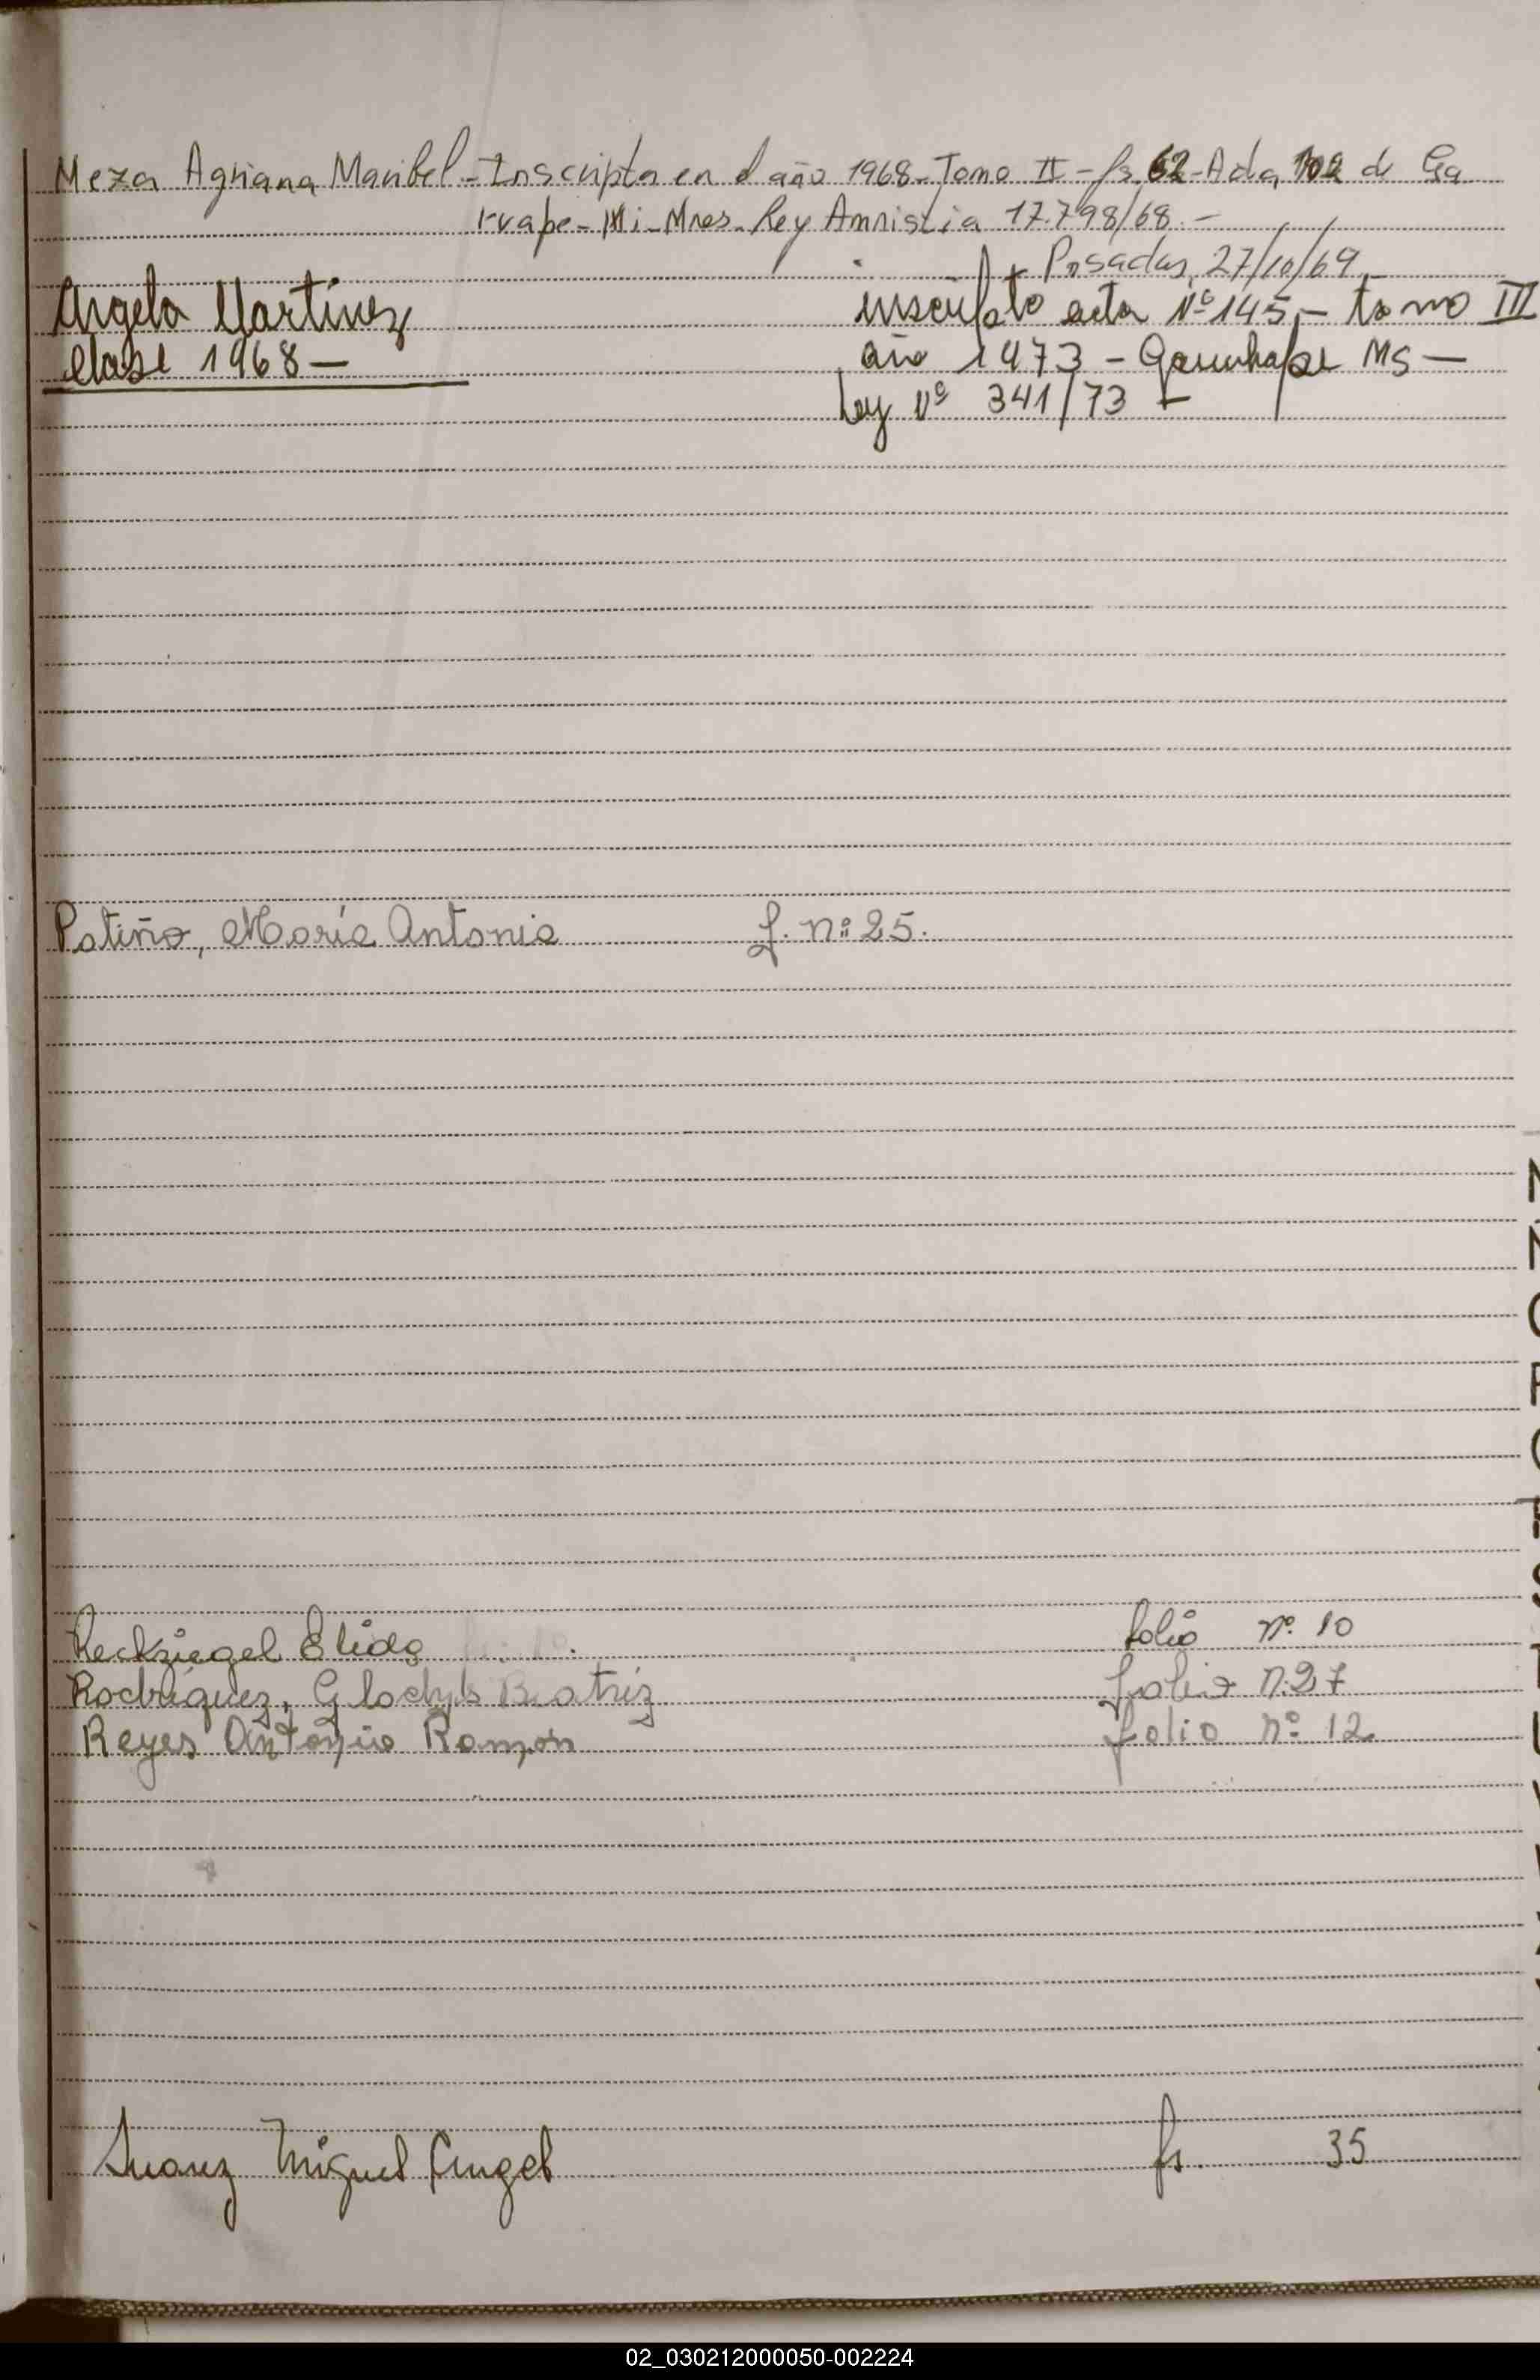 Meza Agriana Maribel - Inscripta en el año 1968 - Tomo II - fs. 62 - Acta 102 de Ga
rvape - Mi - Mnes. Ley Amnistia 17.798/68. -
Posadas, 27/10/69
Angela Martinez
inscripto acta Nº 145 - tomo III
Clase 1968 -
año 1973 - Garuhape MS -
Ley Nº 341/73 -
Patiño, María Antonia f. nº 25.
N
Ñ
O
P
Q
R
S
T
U
V
Reckziegel Elida folio nº 10
Rodríguez, Gladys Beatriz folio n. 27
Reyes Antonio Ramon folio nº 12
Suarez Miguel Angel fs. 35
02_030212000050-002224